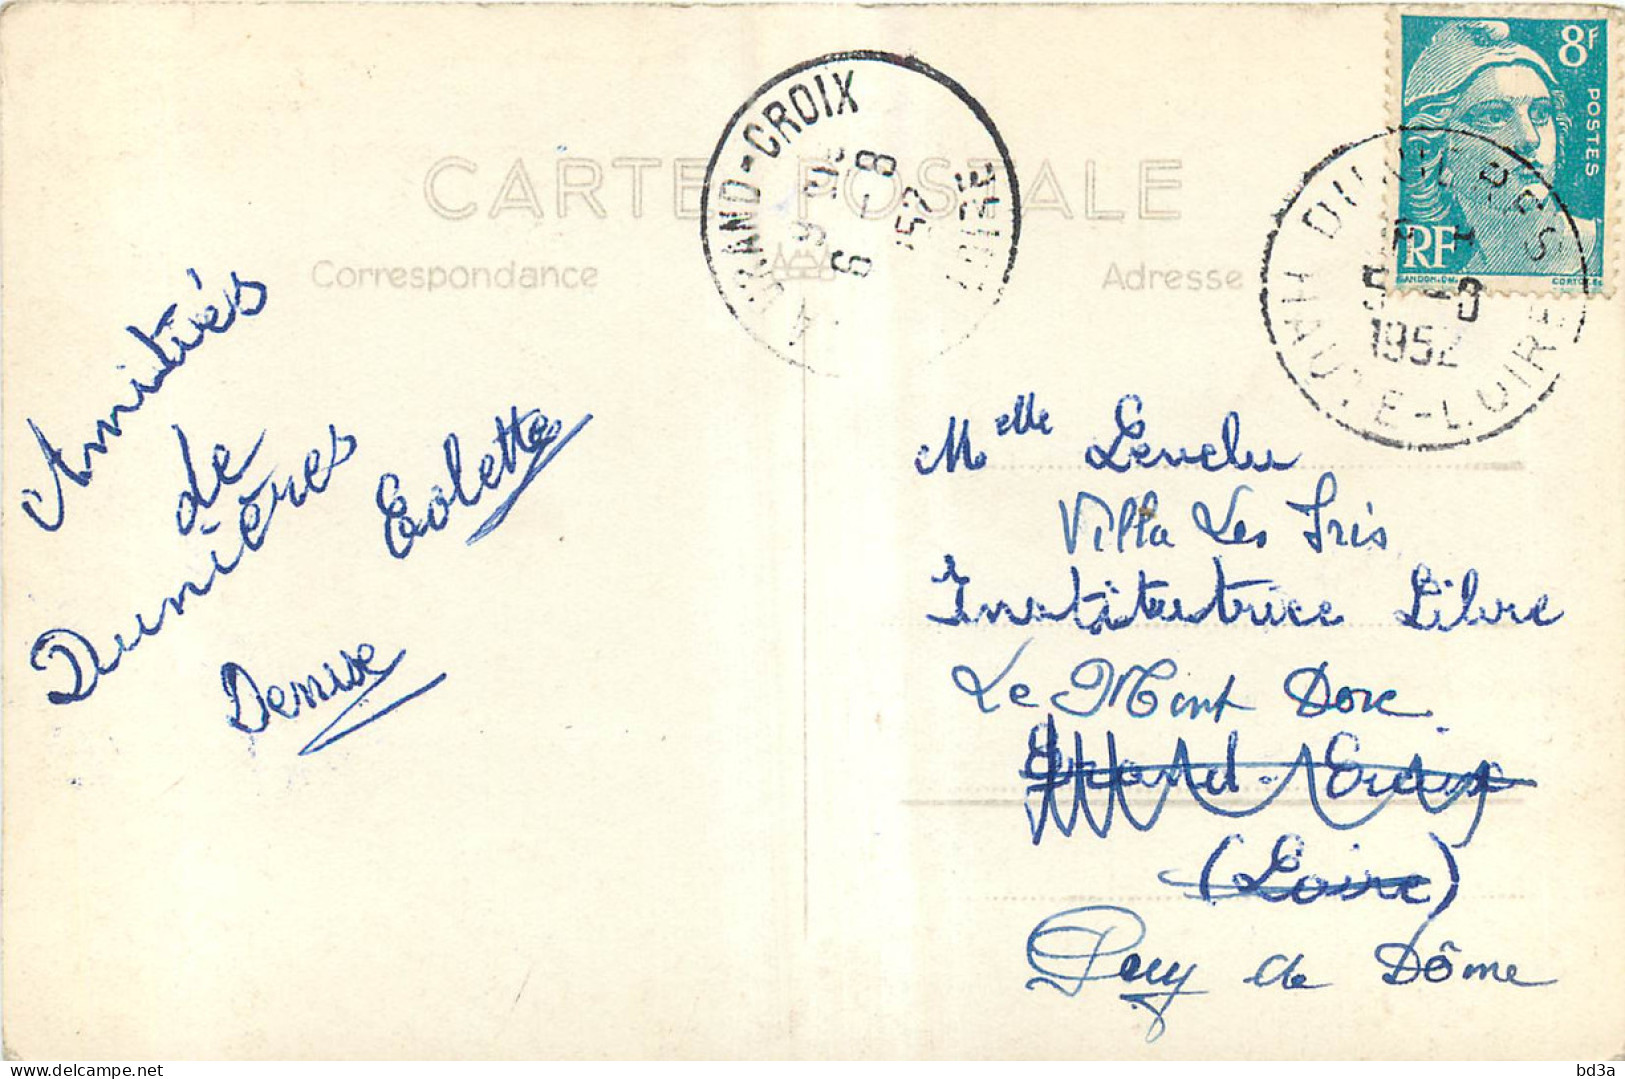 CARTE POSTALE
Correspondance
Adresse
8F
POSTES
RF
GANDON
CORTOT
LA GRAND-CROIX
6-8
1952
LOIRE
DUNIERES
5-8
1952
HAUTE-LOIRE
Amitiés
de
Dunières
Colette
Denise
Melle
Villa Les Iris
Institutrice Libre
Le Mont Dore
Grand-Croix
(Loire)
Puy de Dôme
delcampe.net
bd3a